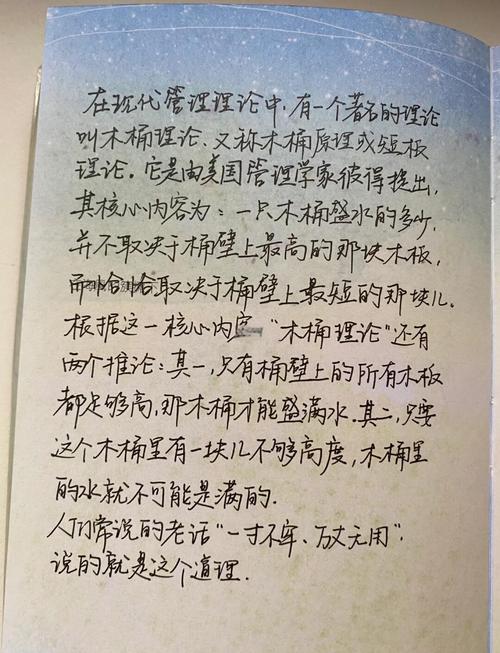 在现代管理理论中,有一个著名的理论
叫木桶理论、又称木桶原理或短板
理论。它是由美国管理学家彼得提出,
其核心内容为:一只木桶盛水的多少,
并不取决于桶壁上最高的那块木板,
而恰恰取决于桶壁上最短的那块儿.
根据这一核心内容 "木桶理论"还有
两个推论:其一,只有桶壁上的所有木板
都足够高,那木桶才能盛满水.其二,只要
这个木桶里有一块儿不够高度,木桶里
的水就不可能是满的.
人们常说的老话"一寸不牢、万丈无用",
说的就是这个道理.